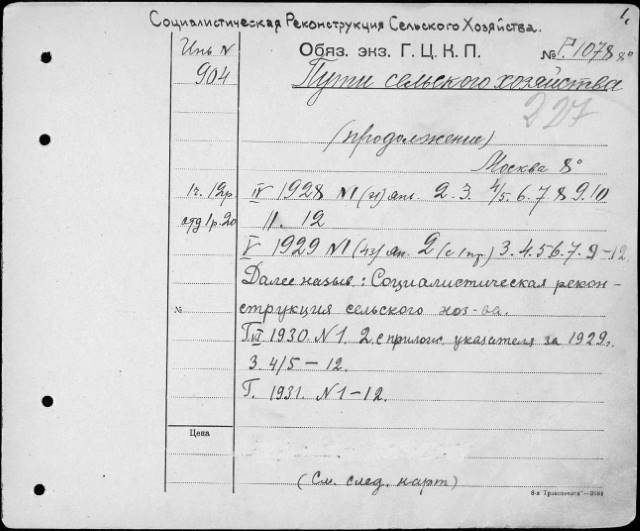 1.
Социалистическая Реконструкция Сельского Хозяйства.
Инв N
Обяз. экз. Г. Ц. К. П.
№ Р.1078 8°
904
Пути сельского хозяйства
227
(продолжение)
Москва 8°
1ч. 12р.
IV 1928 N1 (31) янв. 2. 3. 4/5. 6. 7. 8 9. 10
отд 1р. 20
11. 12
V 1929 N1 (43) ян. 2 (с 1 пр.) 3. 4. 5 6. 7. 9–12.
Далее назыв: Социалистическая рекон-
№
струкция сельского хоз-ва.
Г. VI 1930. N1. 2 с прилож. указателя за 1929.
3. 4/5 – 12.
Г. 1931. N1–12.
Цена
(См. след. карт)